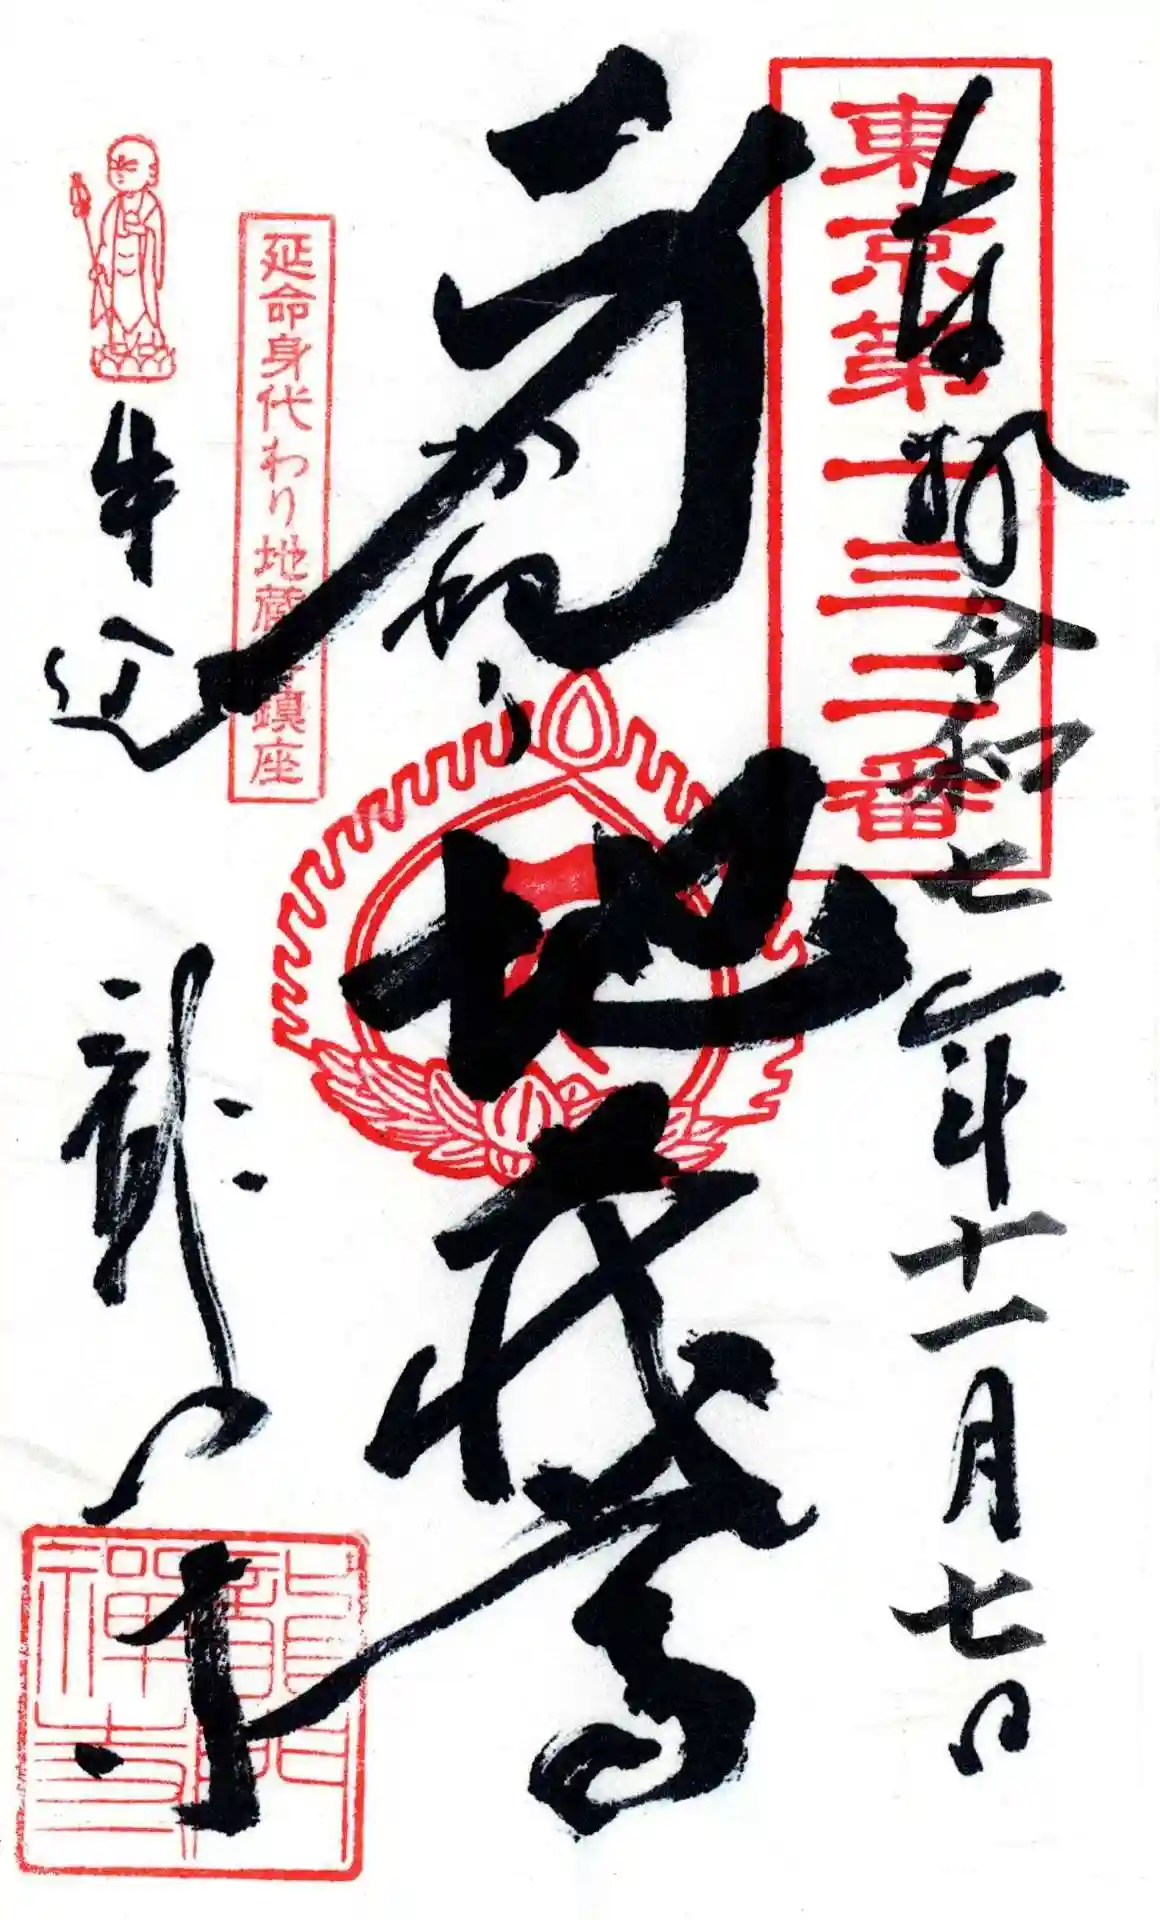 東京第一三二番
奉拝 令和七年十一月七日
身がわり
地蔵尊
延命身代わり地蔵尊鎮座
牛込 龍門寺
龍門
禪寺